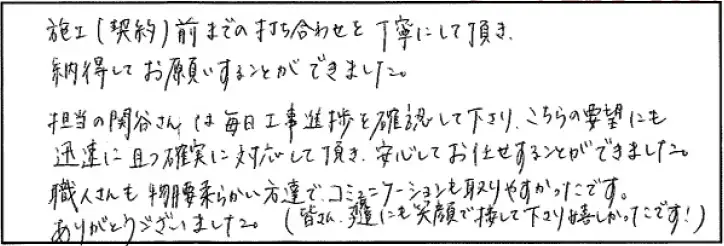 施工(契約)前までの打ち合わせを丁寧にして頂き、
納得してお願いすることができました。
担当の関谷さんは毎日工事進捗を確認して下さり、こちらの要望にも
迅速に且つ確実に対応して頂き、安心してお任せすることができました。
職人さんも物腰柔らかい方達で、コミュニケーションも取りやすかったです。
ありがとうございました。(皆さん、にも笑顔で接して下さり嬉しかったです!)